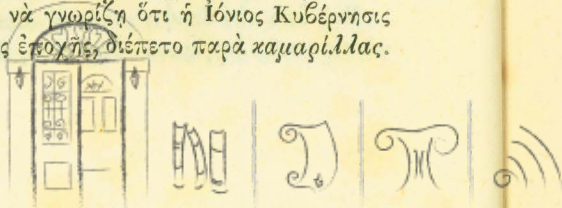 νὰ γνωρίζῃ ὅτι ἡ Ἰόνιος Κυβέρνησις
ς ἐποχῆς, διέπετο παρὰ καμαρίλλας.